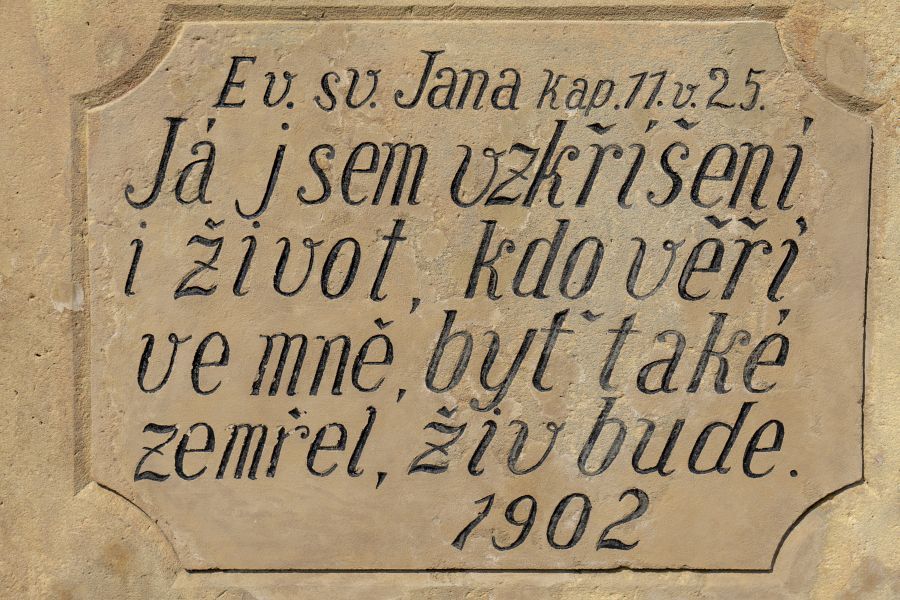 Ev. sv. Jana kap. 11. v. 25.
Já jsem vzkříšení
i život, kdo věří
ve mně, byť také
zemřel, živ bude.
1902